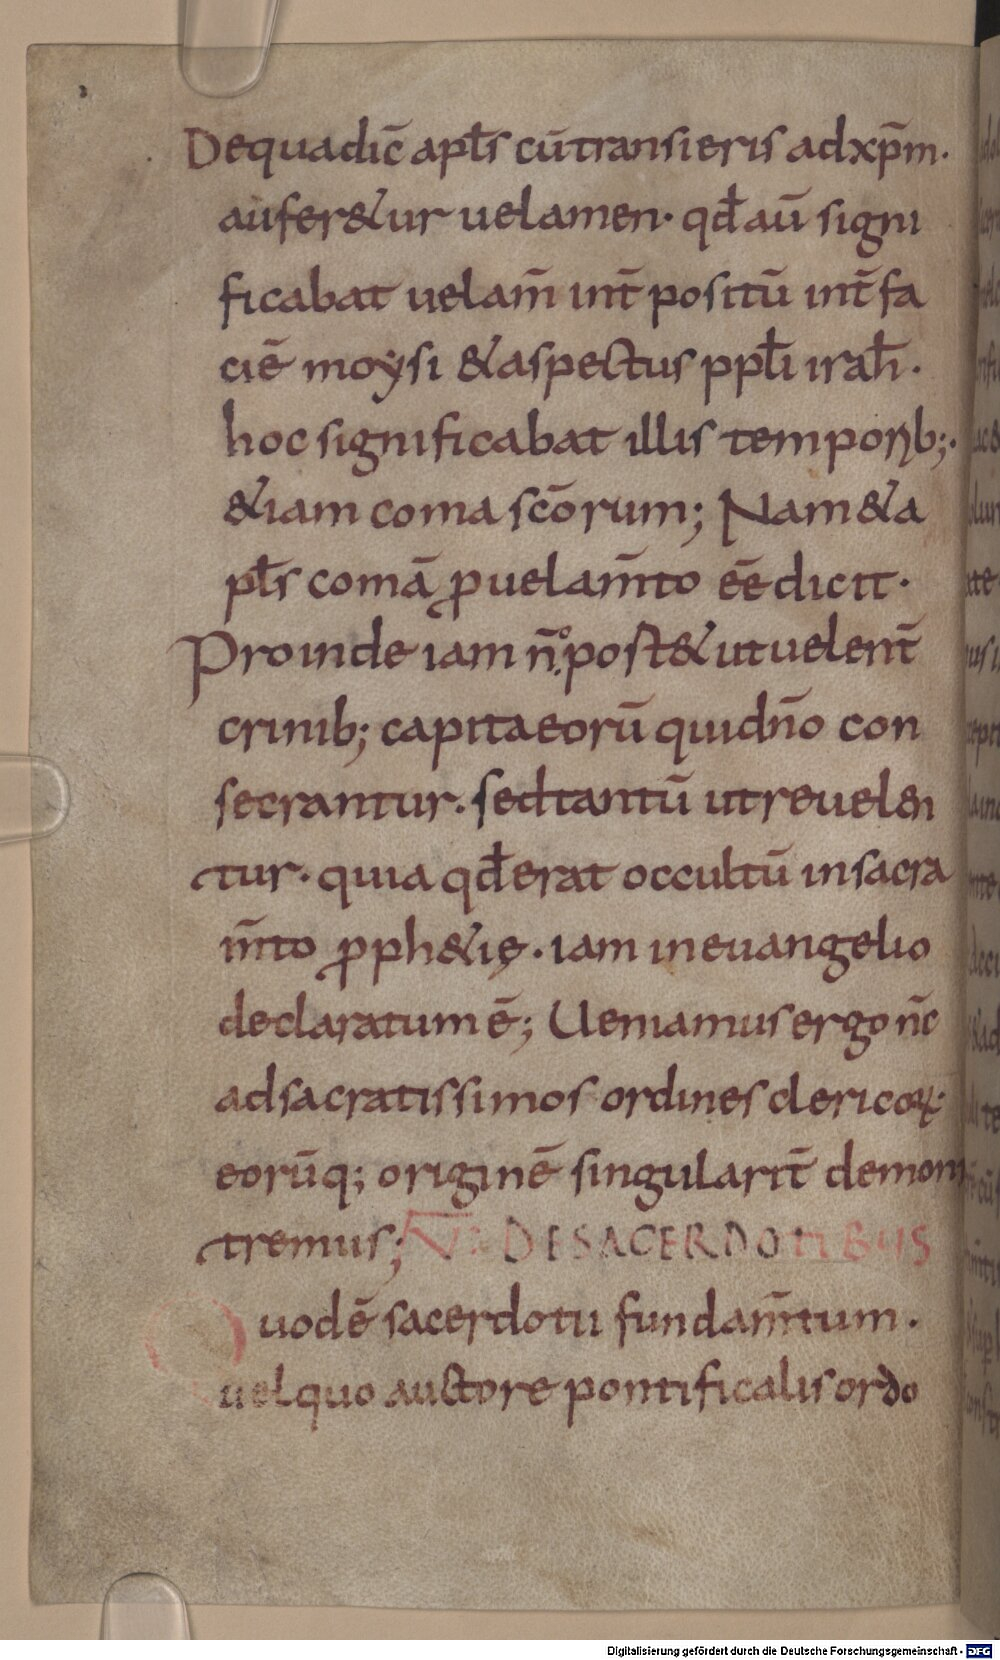 Dequadic̄ apl̄s cū transieris adxp̄m·
aufer&ur uelamen· qd̄ aū signi
ficabat uelam̄ int̄ positū int̄ fa
ciē moysi &aspectus ppl̄i irah̄·
hoc significabat illis temporib;·
&iam coma sc̄orum; Nam&a
pl̄s comā ꝓuelam̄to eē dicit·
Proinde iam n̄ post& ut uelent̄
crinib; capita eorū quid n̄o con
secrantur· sed tantū utreuelen
tur· quia qd̄ erat occultū insacra
m̄to ꝓph&ię· iam ineuangelio
declaratum ē; Ueniamus ergo n̄c
adsacratissimos ordines clericoꝝ·
eorūq; originē singularit̄ demon
tremus; V· DE SACERDOTIBUS
Quod ē sacerdotii fundam̄tum·
uel quo auctore pontificalis ordo
Digitalisierung gefördert durch die Deutsche Forschungsgemeinschaft - DFG